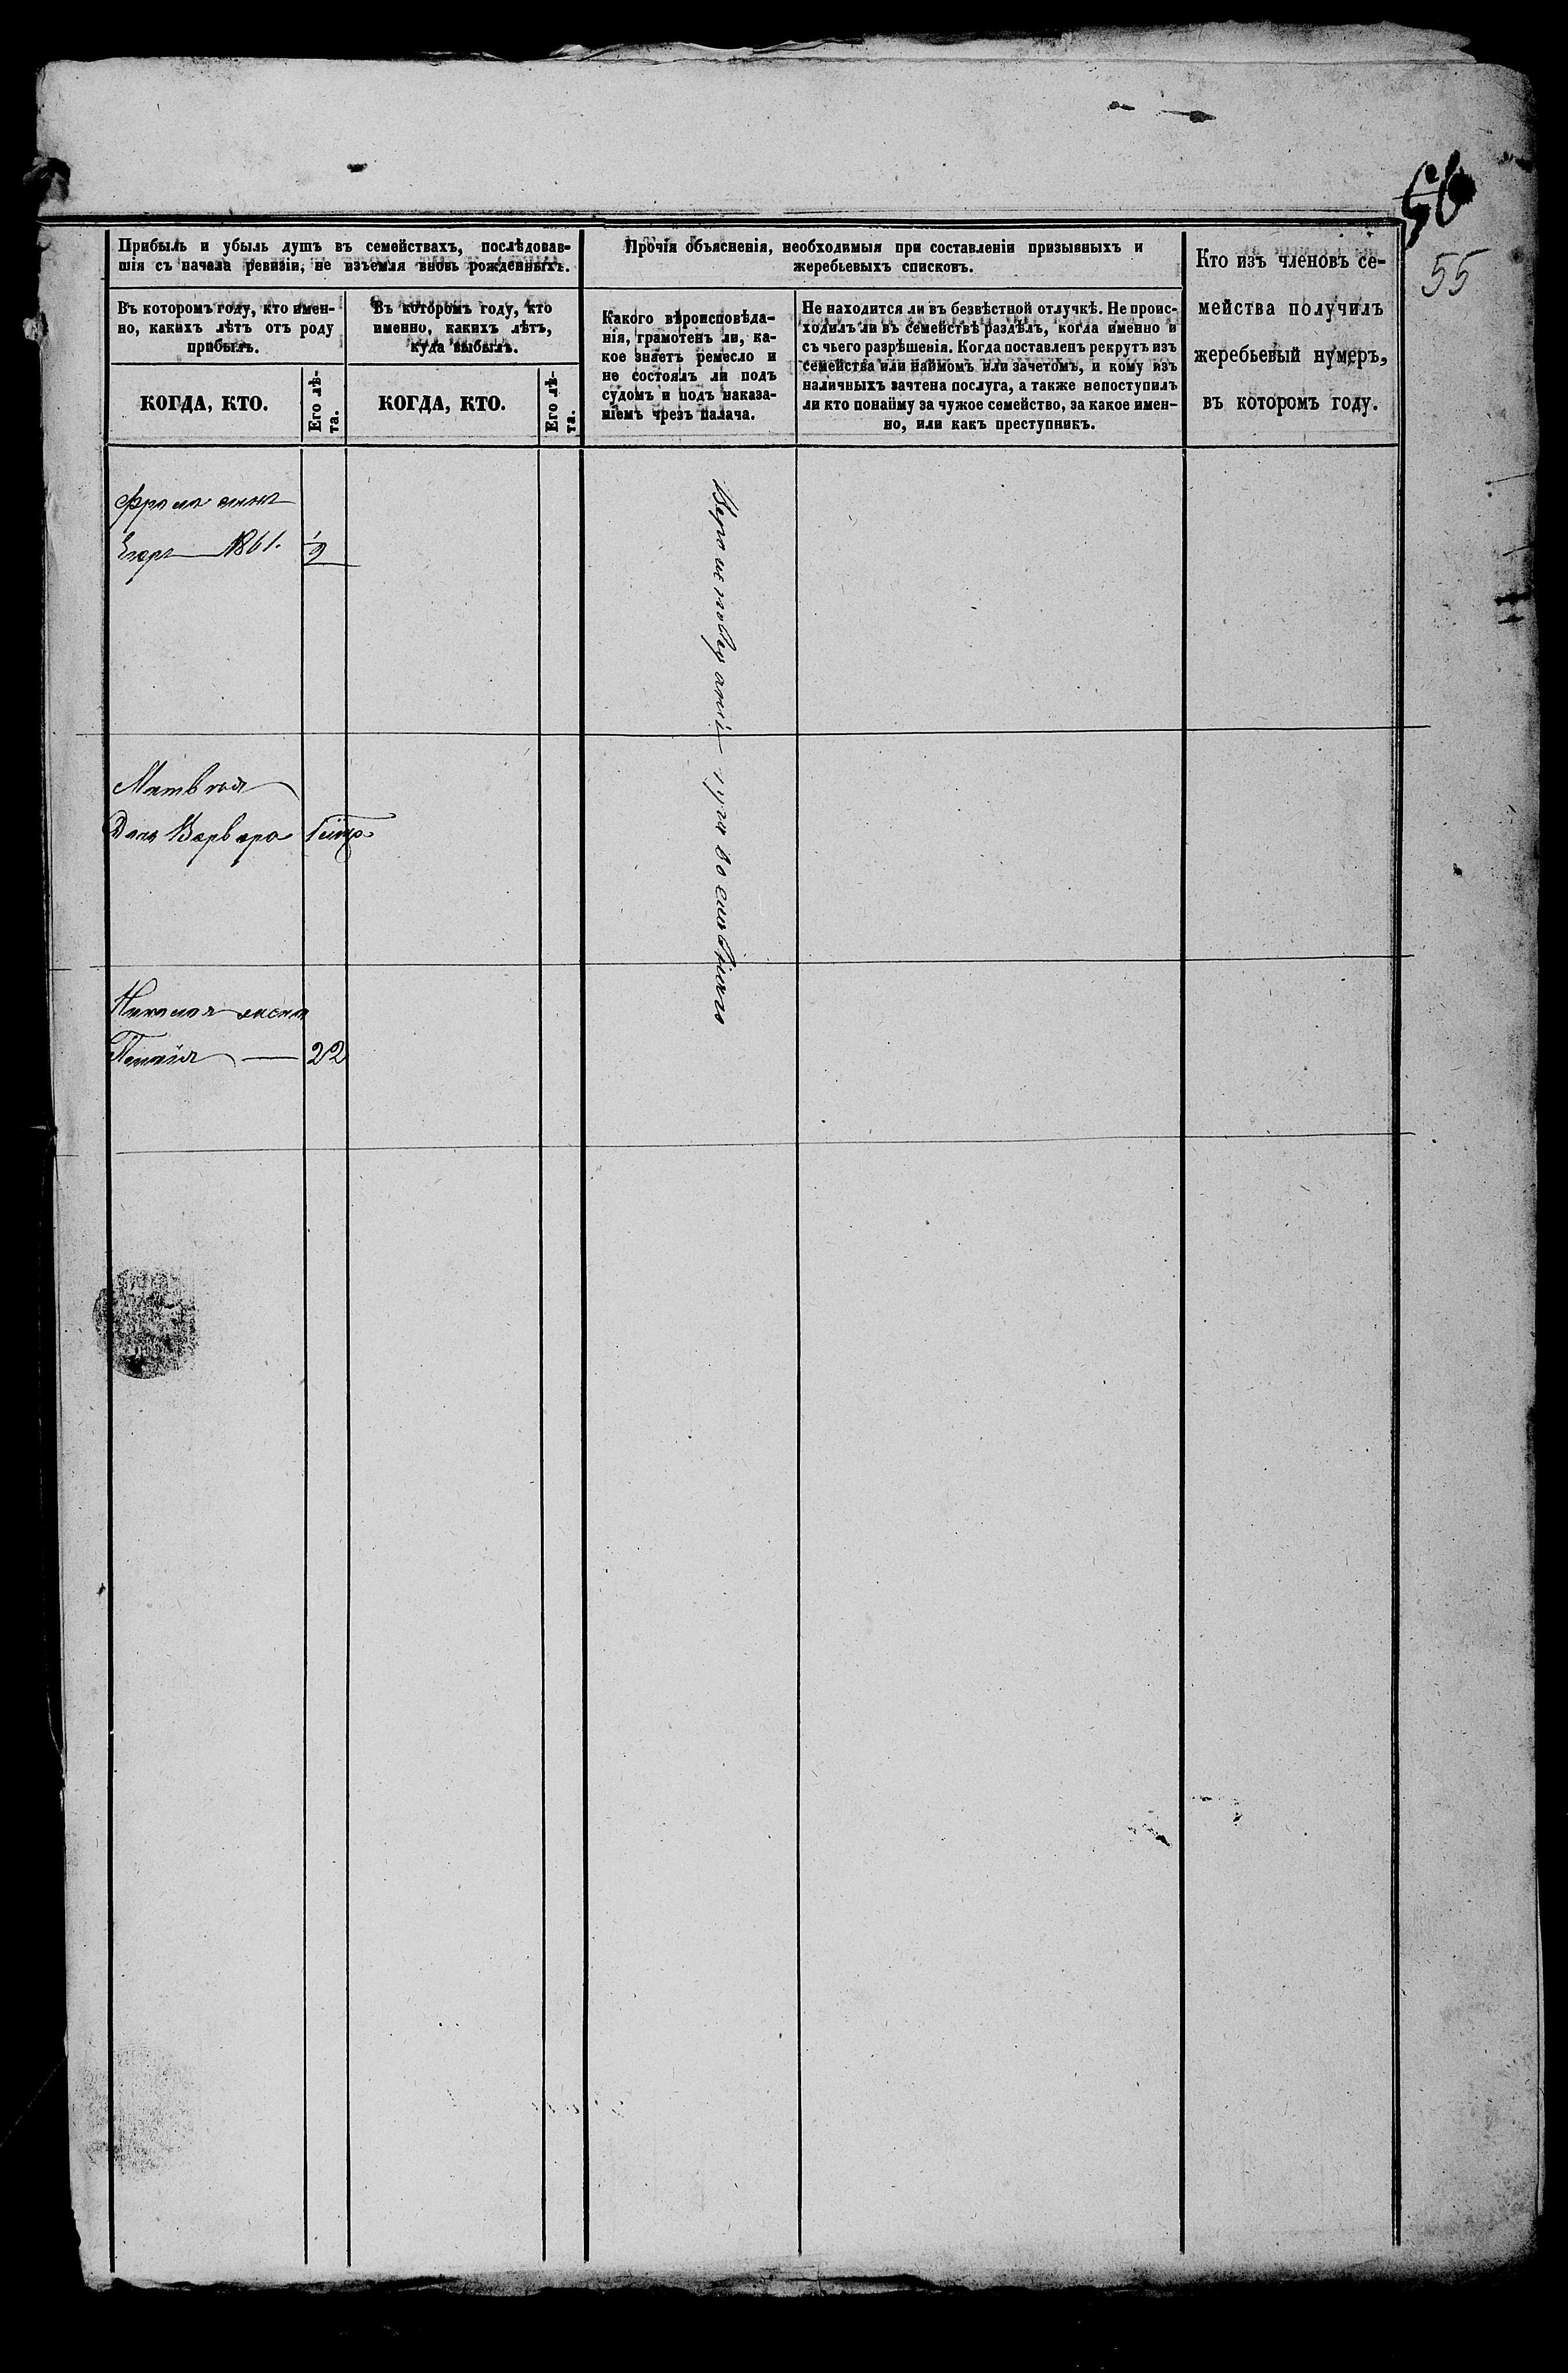 56
55
Прибыль и убыль душъ въ семействахъ, послѣдовав-
шія съ начала ревизіи, не изъемля вновь рожденныхъ.
Прочія объясненія, необходимыя при составленіи призывныхъ и
жеребьевыхъ списковъ.
Кто изъ членовъ се-
мейства получилъ
жеребьевый нумеръ,
въ которомъ году.
Въ которомъ году, кто имен-
но, какихъ лѣтъ отъ роду
прибылъ.
Въ которомъ году, кто
именно, какихъ лѣтъ,
куда выбылъ.
Какого вѣроисповѣда-
нія, грамотенъ ли, ка-
кое знаетъ ремесло и
не состоялъ ли подъ
судомъ и подъ наказа-
ніемъ чрезъ палача.
Не находится ли въ безвѣстной отлучкѣ. Не проис-
ходилъ ли въ семействѣ раздѣлъ, когда именно и
съ чьего разрѣшенія. Когда поставленъ рекрутъ изъ
семейства или наймомъ или зачетомъ, и кому изъ
наличныхъ зачтена послуга, а также непоступилъ
ли кто понайму за чужое семейство, за какое имен-
но, или какъ преступникъ.
КОГДА, КТО.
Его лѣ-
та.
КОГДА, КТО.
Его лѣ-
та.
Фрола сынъ
Егоръ 1861. 1/2
Матвѣя
Дочь Варвара
Николая жена
22